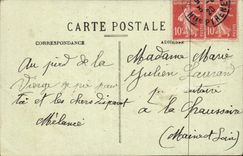 CARTE POSTALE
CORRESPONDANCE
Au pied de la
Vierge je prie pour
toi et les chers Disparus
Mélanie
Madame Marie
Julien
à la Chaussaire
(Maine et Loire)
10
10